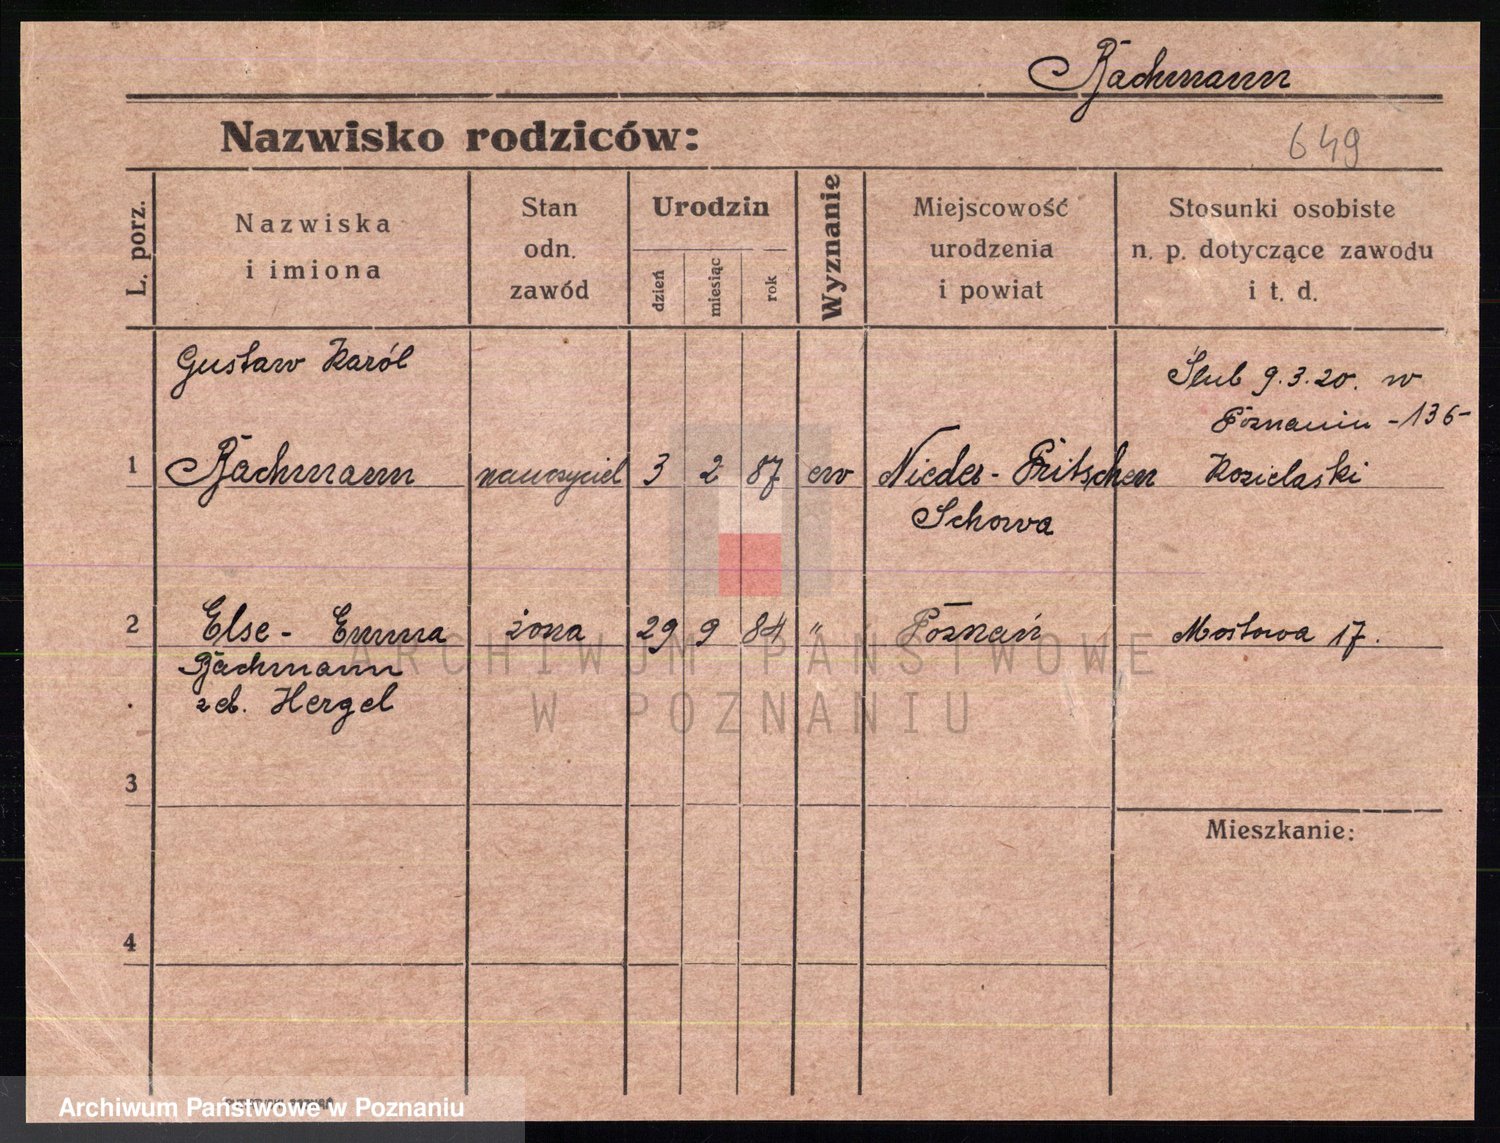 Bachmann
Nazwisko rodziców:
649
L. porz.
Nazwiska
i imiona
Stan
odn.
zawód
Urodzin
dzień
miesiąc
rok
Wyznanie
Miejscowość
urodzenia
i powiat
Stosunki osobiste
n. p. dotyczące zawodu
i t. d.
Gustaw Karól
Ślub 9.3.20. w
Poznaniu -136-
1 Bachmann nauczyciel 3 2 87 ew Nieder-Pritschen Kozielaski
Schowa
2 Else- Emma żona 29 9 84 " Poznań Mostowa 17.
Bachmann
zeb. Hergel
3
Mieszkanie:
4
ARCHIWUM PAŃSTWOWE
W POZNANIU
Archiwum Państwowe w Poznaniu